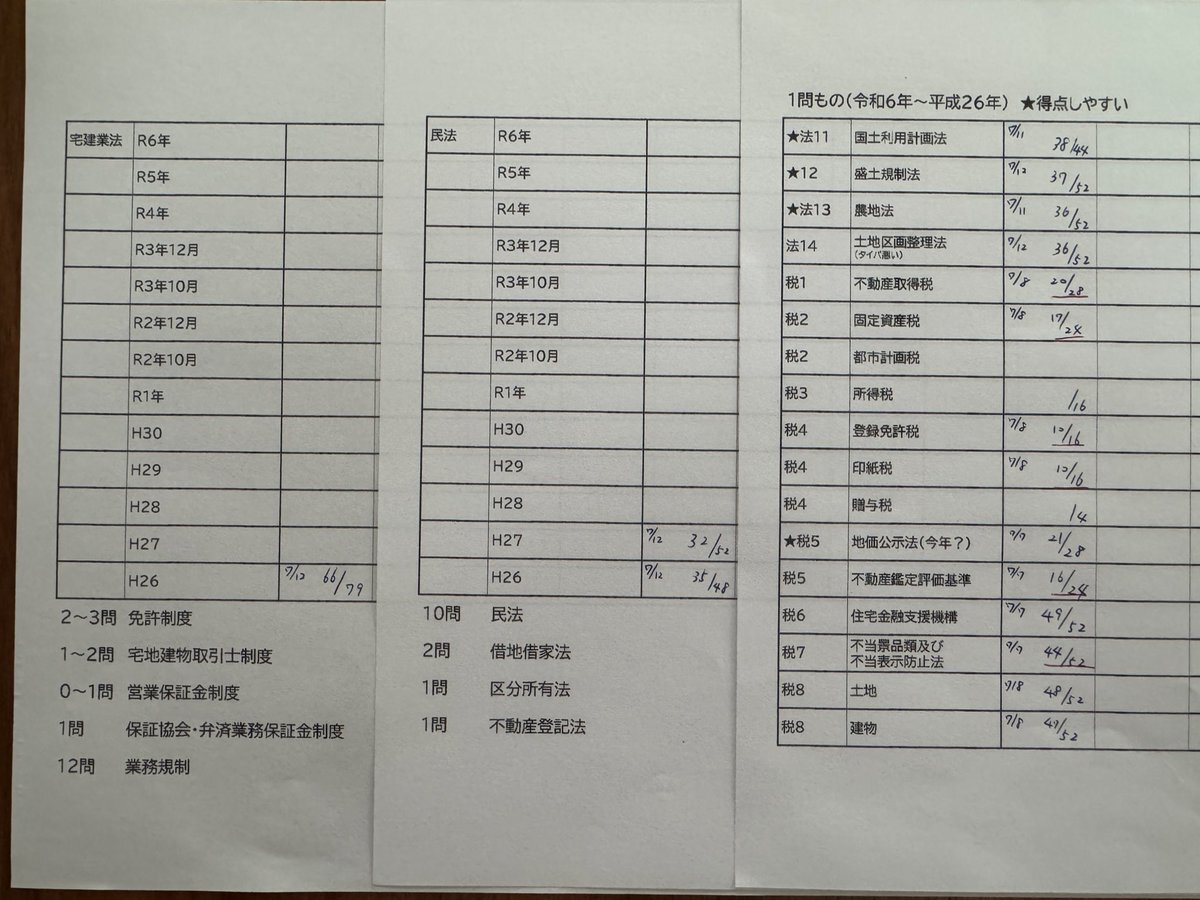 宅建業法 R6年
R5年
R4年
R3年12月
R3年10月
R2年12月
R2年10月
R1年
H30
H29
H28
H27
H26 7/12 66/79
2～3問 免許制度
1～2問 宅地建物取引士制度
0～1問 営業保証金制度
1問 保証協会・弁済業務保証金制度
12問 業務規制
民法 R6年
R5年
R4年
R3年12月
R3年10月
R2年12月
R2年10月
R1年
H30
H29
H28
H27 7/12 32/52
H26 7/12 35/48
10問 民法
2問 借地借家法
1問 区分所有法
1問 不動産登記法
1問もの(令和6年～平成26年) ★得点しやすい
★法11 国土利用計画法 7/11 38/44
★12 盛土規制法 7/12 37/52
★法13 農地法 7/11 36/52
法14 土地区画整理法 7/12 36/52
(タイパ悪い)
税1 不動産取得税 7/8 20/28
税2 固定資産税 7/8 17/24
税2 都市計画税
税3 所得税 /16
税4 登録免許税 7/8 10/16
税4 印紙税 7/8 10/16
税4 贈与税 /4
★税5 地価公示法(今年?) 7/7 21/28
税5 不動産鑑定評価基準 7/7 16/24
税6 住宅金融支援機構 7/7 49/52
税7 不当景品類及び
不当表示防止法 7/7 44/52
税8 土地 7/8 48/52
税8 建物 7/8 /52